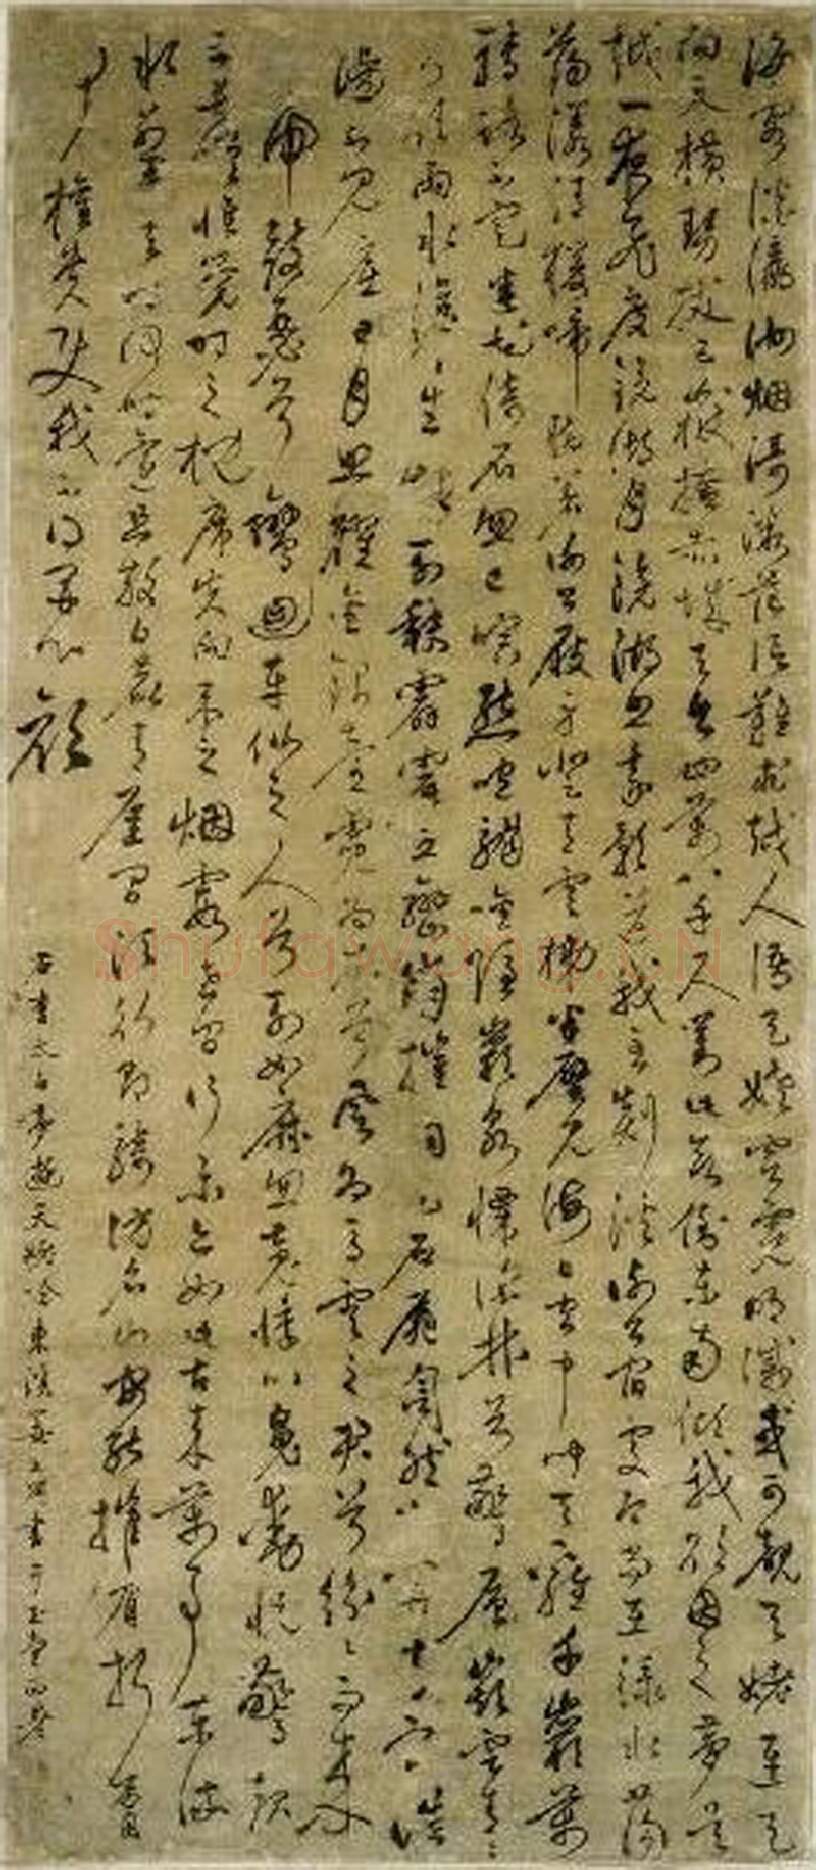 海客談瀛洲烟濤微茫信難求越人語天姥雲霓明滅或可覩天姥連天
向天橫勢拔五嶽掩赤城天台四萬八千丈對此欲倒東南傾我欲因之夢吳
越一夜飛度鏡湖月鏡湖影送我至剡溪謝公宿處今尚在淥水蕩
蕩漾清猿啼脚著謝公屐身登青雲梯半壁見海日空中聞天雞千巖萬
轉路不定迷花倚石忽已暝熊咆龍吟殷巖泉慄深林兮驚層巔雲青青
兮欲雨水澹澹生烟列缺霹靂丘巒崩摧洞天石扉訇然中開青冥浩
蕩不見底日月照耀金銀臺霓為衣兮風為馬雲之君兮紛紛而來下
虎鼓瑟兮鸞回車仙之人兮列如麻忽魂悸以魄動怳驚起
而長嗟惟覺時之枕席失向來之烟霞世間行樂亦如此古來萬事東流
水別君去時何時還且放白鹿青崖間須行即騎訪名山安能摧眉折腰
事權貴使我不得開心顏
右書太白夢遊天姥吟東書于玉堂
shufawang.cn